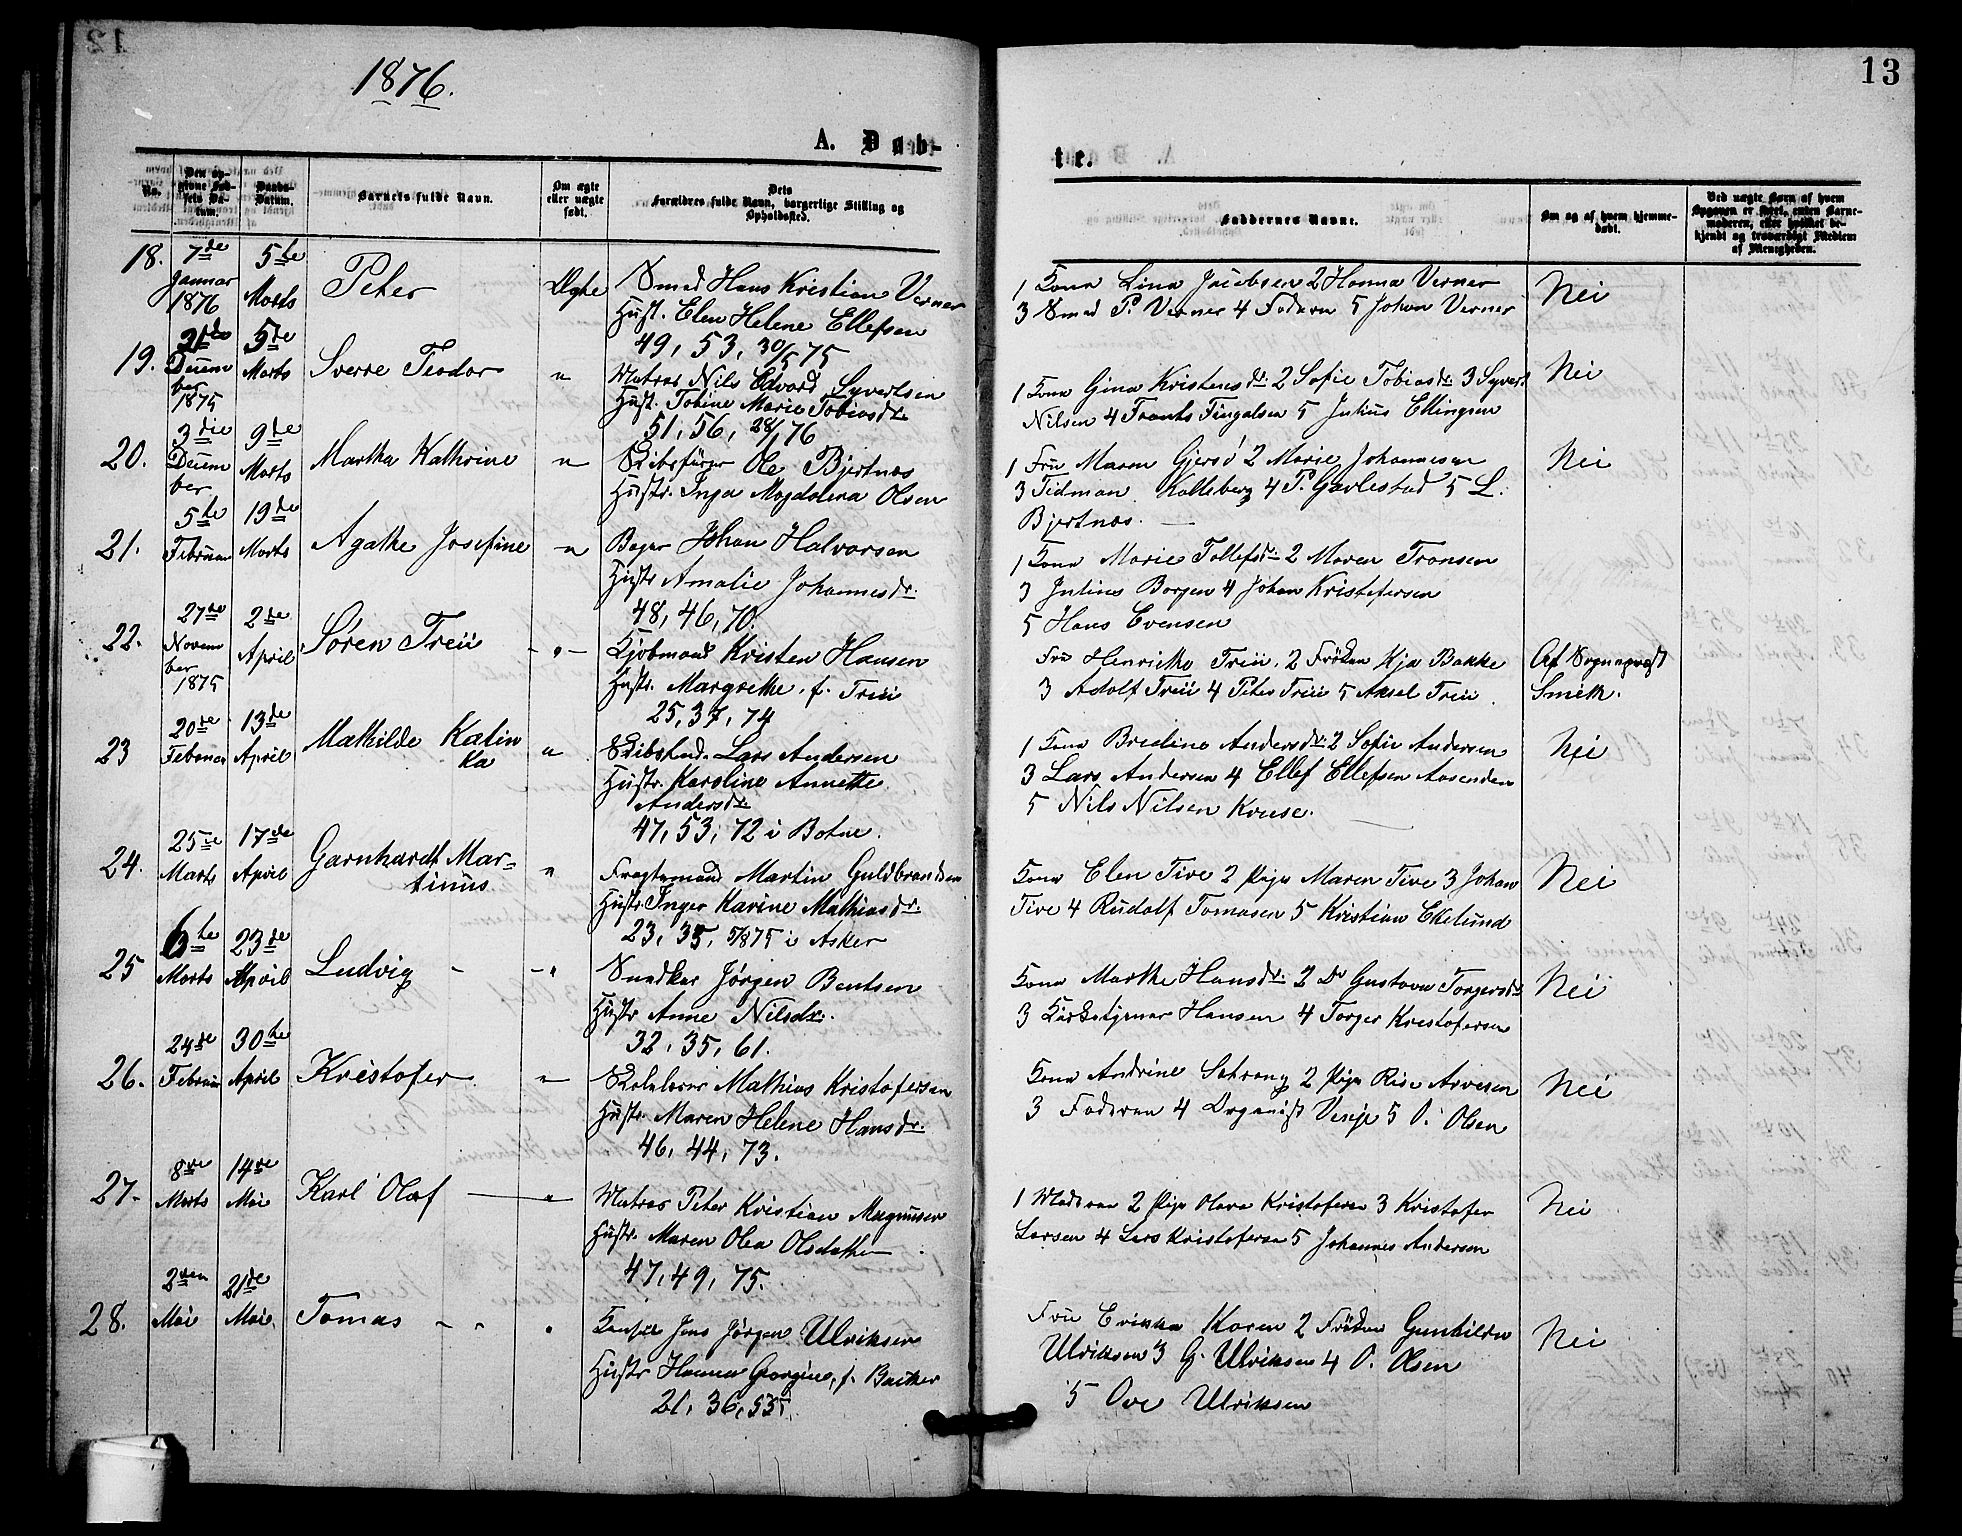 1876.
13
A. Døb-
te.
No.
Den op-
givne Fød-
sels Da-
tum.
Daabs-
Datum.
Barnets fulde Navn.
Om ægte
eller uægte
født.
Dets
Forældres fulde Navn, borgerlige Stilling og
Opholdssted.
Faddernes Navne.
Om og af hvem hjemme-
døbt.
Ved uægte Børn af hvem
Opgaven er skeet, enten Barne-
moderen, eller hvilket be-
kjendt og troværdigt Medlem
af Menigheden.
18.
7de
Januar
1876
5te
Marts
Peter
Ægte
Smed Hans Kristian Verner
Hust. Elen Helene Ellefsen
49, 53, 30/5 75
1 Kona Lina Jacobsen 2 Hanna Verner
3 Smed P. Verner 4 Faderen 5 Johan Verner
Nei
19.
21de
Decem
ber
1875
5te
Marts
Sverre Teodor
"
Matros Nils Edvard Syvertsen
Hust. Tobine Marie Tobiasdr.
51, 56, 28/1 76
1 Kona Gina Kristensdr. 2 Sofie Tobiasdr. 3 Syvert
Nilsen 4 Frants Fingalsen 5 Julius Ellingsen
Nei
20.
3die
Decem
ber
9de
Marts
Martha Kathrine
"
Skibsfører Ole Bjertnæs
Hustr. Inga Magdalena Olsen
1 Fru Maren Gjersø 2 Marie Johannesen
3 Tidman Kolleberg 4 P. Gavlestad 5 L.
Bjertnæs.
Nei
21.
5te
Februar
19de
Marts
Agathe Josefine
"
Bager Johan Halvorsen
Hustr Amalie Johannesdr.
48, 46, 70.
1 Kona Marie Tollefsdr. 2 Maren Transen
3 Julius Borgen 4 Johan Kristofersen
5 Hans Evensen
22.
27de
Novem
ber
1875
2de
April
Søren Treu
"
Kjøbmand Kristen Hansen
Hustr. Margrethe, f. Treu
25, 37, 74
Fru Henrikke Treu, 2 Frøken Kja Bakke
3 Adolf Treu 4 Peter Treu 5 Aksel Treu
Af Sognepræst
Smith.
23
20de
Februar
13de
April
Mathilde Katin
ka
"
Skibstmd. Lars Andersen
Hustr. Karoline Annette
Andersdr.
47, 53, 72 i Botne.
1 Kona Bredine Andersdr. 2 Sofie Andersen
3 Lars Andersen 4 Ellef Ellefsen Aasenden
5 Nils Nilsen Kruse.
Nei
24.
25de
Marts
17de
April
Garnhardt Mar-
tinus
"
Fragtemand Martin Guldbrandsen
Hustr Inger Karine Mathiasdr.
23, 35, 5/8 75 i Asker
Kona Elen Tive 2 Pige Maren Tive 3 Johan
Tive 4 Rudolf Tomasen 5 Kristian Ekelund
Nei
25
6te
Marts
23de
April
Ludvig
"
Snedker Jørgen Bentsen
Hustr Anne Nilsdr.
32, 35, 61.
Kona Marthe Hansdr. 2 Do Gustava Torgersdr
3 Kirketjener Hansen 4 Torger Kristofersen
Nei
26.
24de
Februar
30te
April
Kristofer
"
Skolelærer Mathias Kristofersen
Hustr. Maren Helene Hansdr.
46, 44, 73.
Kona Andrine Sehrang 2 Pige Rise Arvesen
3 Faderen 4 Organist Venje 5 O. Olsen
Nei
27.
8de
Marts
14de
Mai
Karl Olaf
"
Matros Peter Kristian Magnusen
Hustr. Maren Olea Olsdatter
47, 49, 75.
1 Moderen 2 Pige Olava Kristofersen 3 Kristofer
Larsen 4 Lars Kristofersen 5 Johannes Andersen
Nei
28.
2den
Mai
21de
Mai
Tomas
"
Konsul Jens Jørgen Ulriksen
Hustr Hanna Georgine, f. Backer
21, 36, 53.
Fru Erikka Koren 2 Frøken Gunhilda
Ulriksen 3 G. Ulriksen 4 O. Olsen
5 Ove Ulriksen
Nei